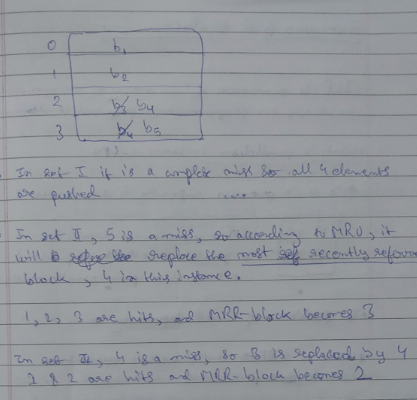 0 b1
1 b2
2 b3 b4
3 b4 b5
In set I it is a complete miss so all 4 elements
are pushed
In set II, 5 is a miss, so according to MRU, it
will replace the most recently referen
block, 4 in this instance.
1, 2, 3 are hits, and MRR-block becomes 3
In set III, 4 is a miss, so 3 is replaced by 4
1 & 2 are hits and MRR-block becomes 2